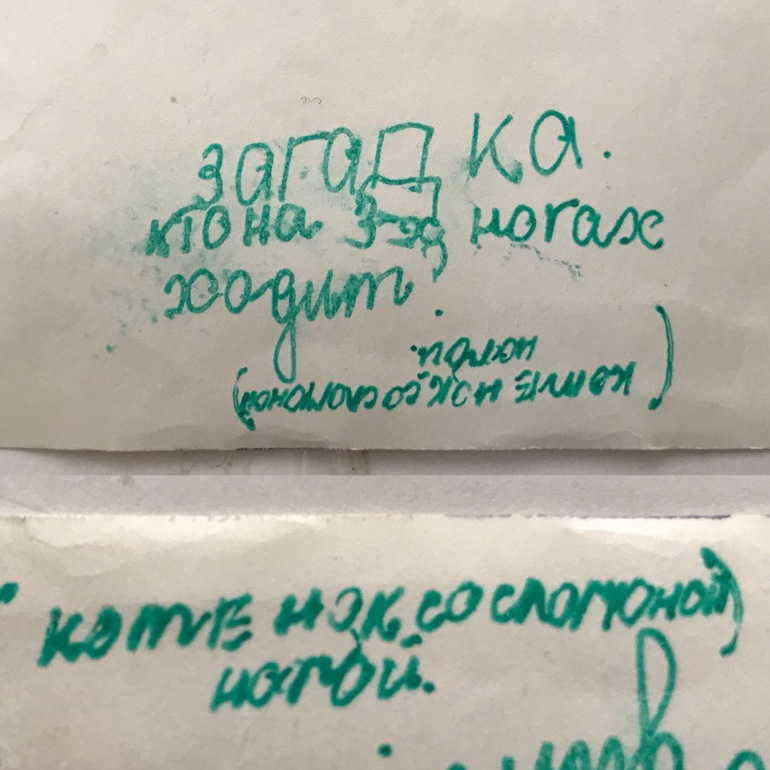 загадка.
кто на 3-х ногах
ходит.
(котЕ нок со сломоной)
ногой.
котЕ нок со сломоной)
ногой.